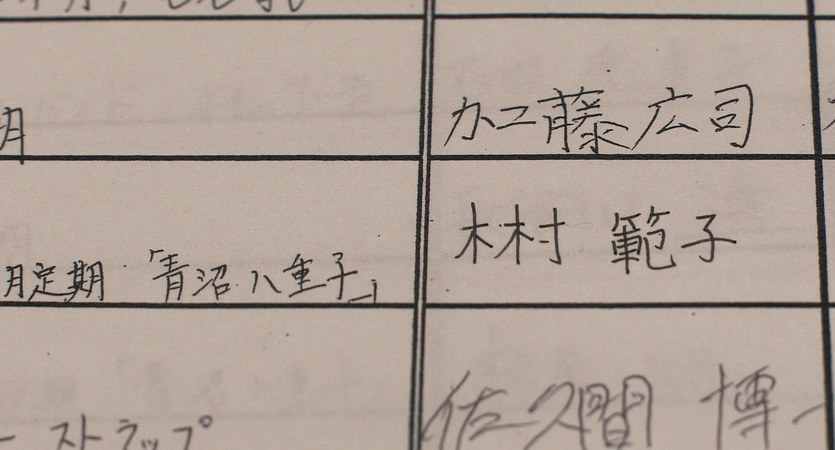 月
加工藤 広司
月定期 「青沼八重子」
木村 範子
ーストラップ
佐久間 博一